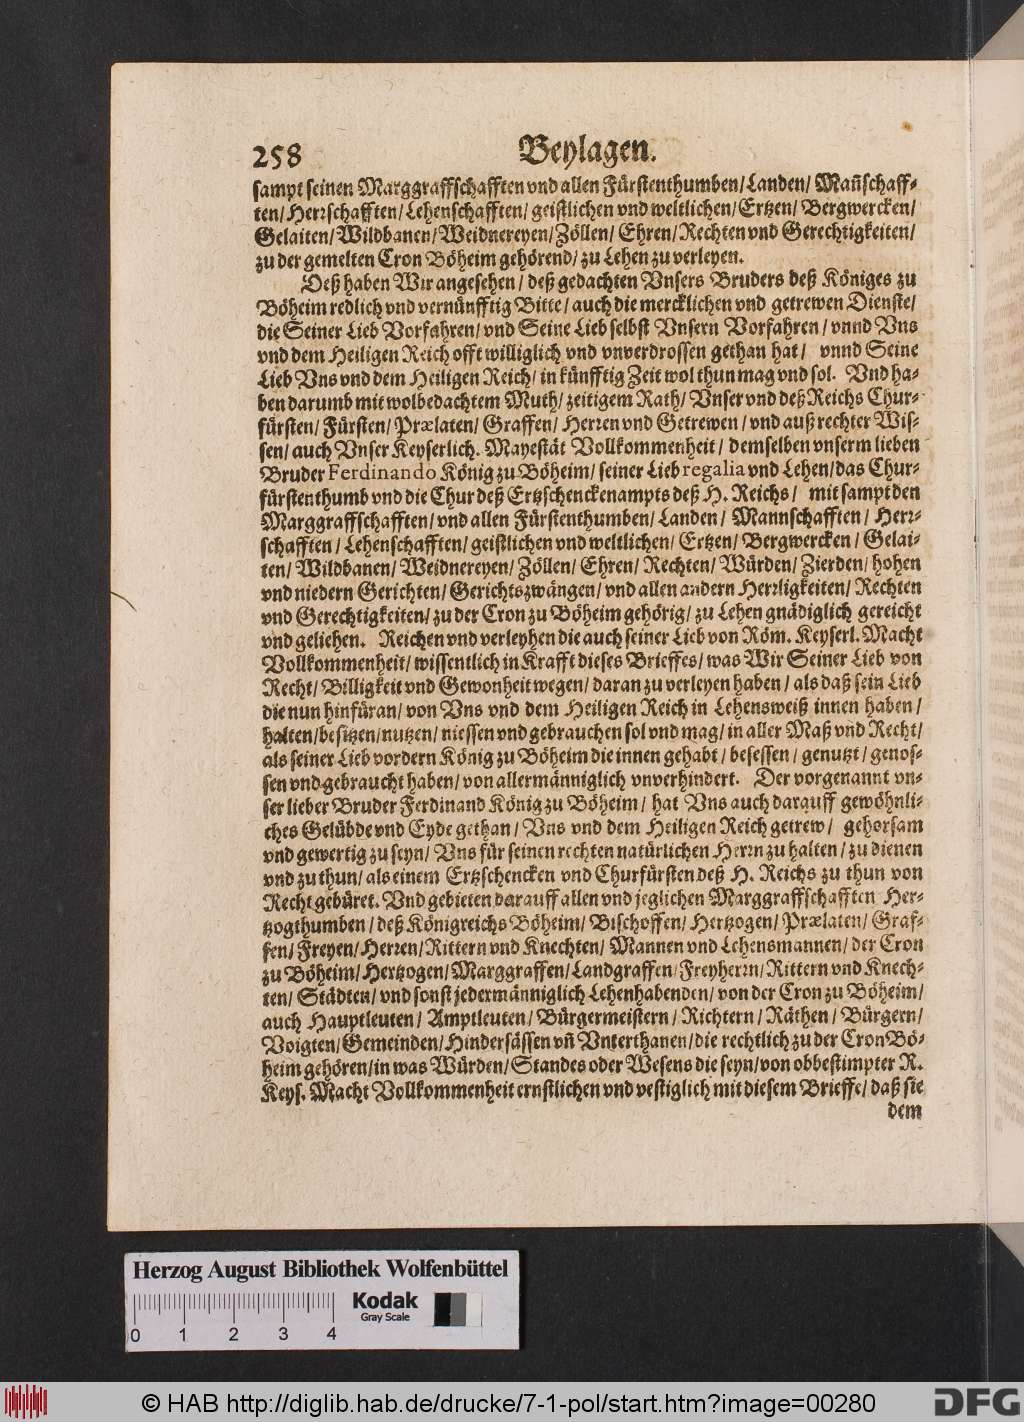 258 Beylagen.
sampt seinen Marggraffschafften vnd allen Fürstenthumben/ Landen/ Mañschaff-
ten/ Herrschafften/ Lehenschafften/ geistlichen vnd weltlichen/ Ertzen/ Bergwercken/
Gelaiten/ Wildbanen/ Weidnereyen/ Zöllen/ Ehren/ Rechten vnd Gerechtigkeiten/
zu der gemelten Cron Böheim gehörend/ zu Lehen zu verleyen.
Deß haben Wir angesehen/ deß gedachten Vnsers Bruders deß Königes zu
Böheim redlich vnd vernünfftig Bitte/ auch die mercklichen vnd getrewen Dienste/
die Seiner Lieb Vorfahren/ vnd Seine Lieb selbst Vnsern Vorfahren/ vnnd Vns
vnd dem Heiligen Reich offt williglich vnd vnverdrossen gethan hat/ vnnd Seine
Lieb Vns vnd dem Heiligen Reich/ in künfftig Zeit wol thun mag vnd sol. Vnd ha-
ben darumb mit wolbedachtem Muth/ zeitigem Rath/ Vnser vnd deß Reichs Chur-
fürsten/ Fürsten/ Prælaten/ Graffen/ Herren vnd Getrewen/ vnd auß rechter Wis-
sen/ auch Vnser Keyserlich. Mayestät Vollkommenheit/ demselben vnserm lieben
Bruder Ferdinando König zu Böheim/ seiner Lieb regalia vnd Lehen/ das Chur-
fürstenthumb vnd die Chur deß Ertzschenckenampts deß H. Reichs/ mit sampt den
Marggraffschafften/ vnd allen Fürstenthumben/ Landen/ Mannschafften/ Herr-
schafften/ Lehenschafften/ geistlichen vnd weltlichen/ Ertzen/ Bergwercken/ Gelai-
ten/ Wildbanen/ Weidnereyen/ Zöllen/ Ehren/ Rechten/ Würden/ Zierden/ hohen
vnd niedern Gerichten/ Gerichtszwängen/ vnd allen andern Herrligkeiten/ Rechten
vnd Gerechtigkeiten/ zu der Cron zu Böheim gehörig/ zu Lehen gnädiglich gereicht
vnd geliehen. Reichen vnd verleyhen die auch seiner Lieb von Röm. Keyserl. Macht
Vollkommenheit/ wissentlich in Krafft dieses Brieffes/ was Wir Seiner Lieb von
Recht/ Billigkeit vnd Gewonheit wegen/ daran zu verleyen haben/ als daß sein Lieb
die nun hinfüran/ von Vns vnd dem Heiligen Reich in Lehensweiß innen haben/
halten/ besitzen/ nutzen/ niessen vnd gebrauchen sol vnd mag/ in aller Maß vnd Recht/
als seiner Lieb vordern König zu Böheim die innen gehabt/ besessen/ genutzt/ genos-
sen vnd gebraucht haben/ von allermänniglich vnverhindert. Der vorgenannt vn-
ser lieber Bruder Ferdinand König zu Böheim/ hat Vns auch darauff gewöhnli-
ches Gelübde vnd Eyde gethan/ Vns vnd dem Heiligen Reich getrew/ gehorsam
vnd gewertig zu seyn/ Vns für seinen rechten natürlichen Herrn zu halten/ zu dienen
vnd zu thun/ als einem Ertzschencken vnd Churfürsten deß H. Reichs zu thun von
Recht gebüret. Vnd gebieten darauff allen vnd jeglichen Marggraffschafften Her-
tzogthumben/ deß Königreichs Böheim/ Bischoffen/ Hertzogen/ Prælaten/ Graf-
fen/ Freyen/ Herren/ Rittern vnd Knechten/ Mannen vnd Lehensmannen/ der Cron
zu Böheim/ Hertzogen/ Marggraffen/ Landgraffen/ Freyherrn/ Rittern vnd Knech-
ten/ Städten/ vnd sonst jedermänniglich Lehenhabenden/ von der Cron zu Böheim/
auch Hauptleuten/ Amptleuten/ Bürgermeistern/ Richtern/ Räthen/ Bürgern/
Voigten/ Gemeinden/ Hindersässen vñ Vnterthanen/ die rechtlich zu der Cron Bö-
heim gehören/ in was Würden/ Standes oder Wesens die seyn/ von obbestimpter R.
Keys. Macht Vollkommenheit ernstlichen vnd vestiglich mit diesem Brieffe/ daß sie
dem
Herzog August Bibliothek Wolfenbüttel
Kodak
Gray Scale
0 1 2 3 4
© HAB http://diglib.hab.de/drucke/7-1-pol/start.htm?image=00280
DFG